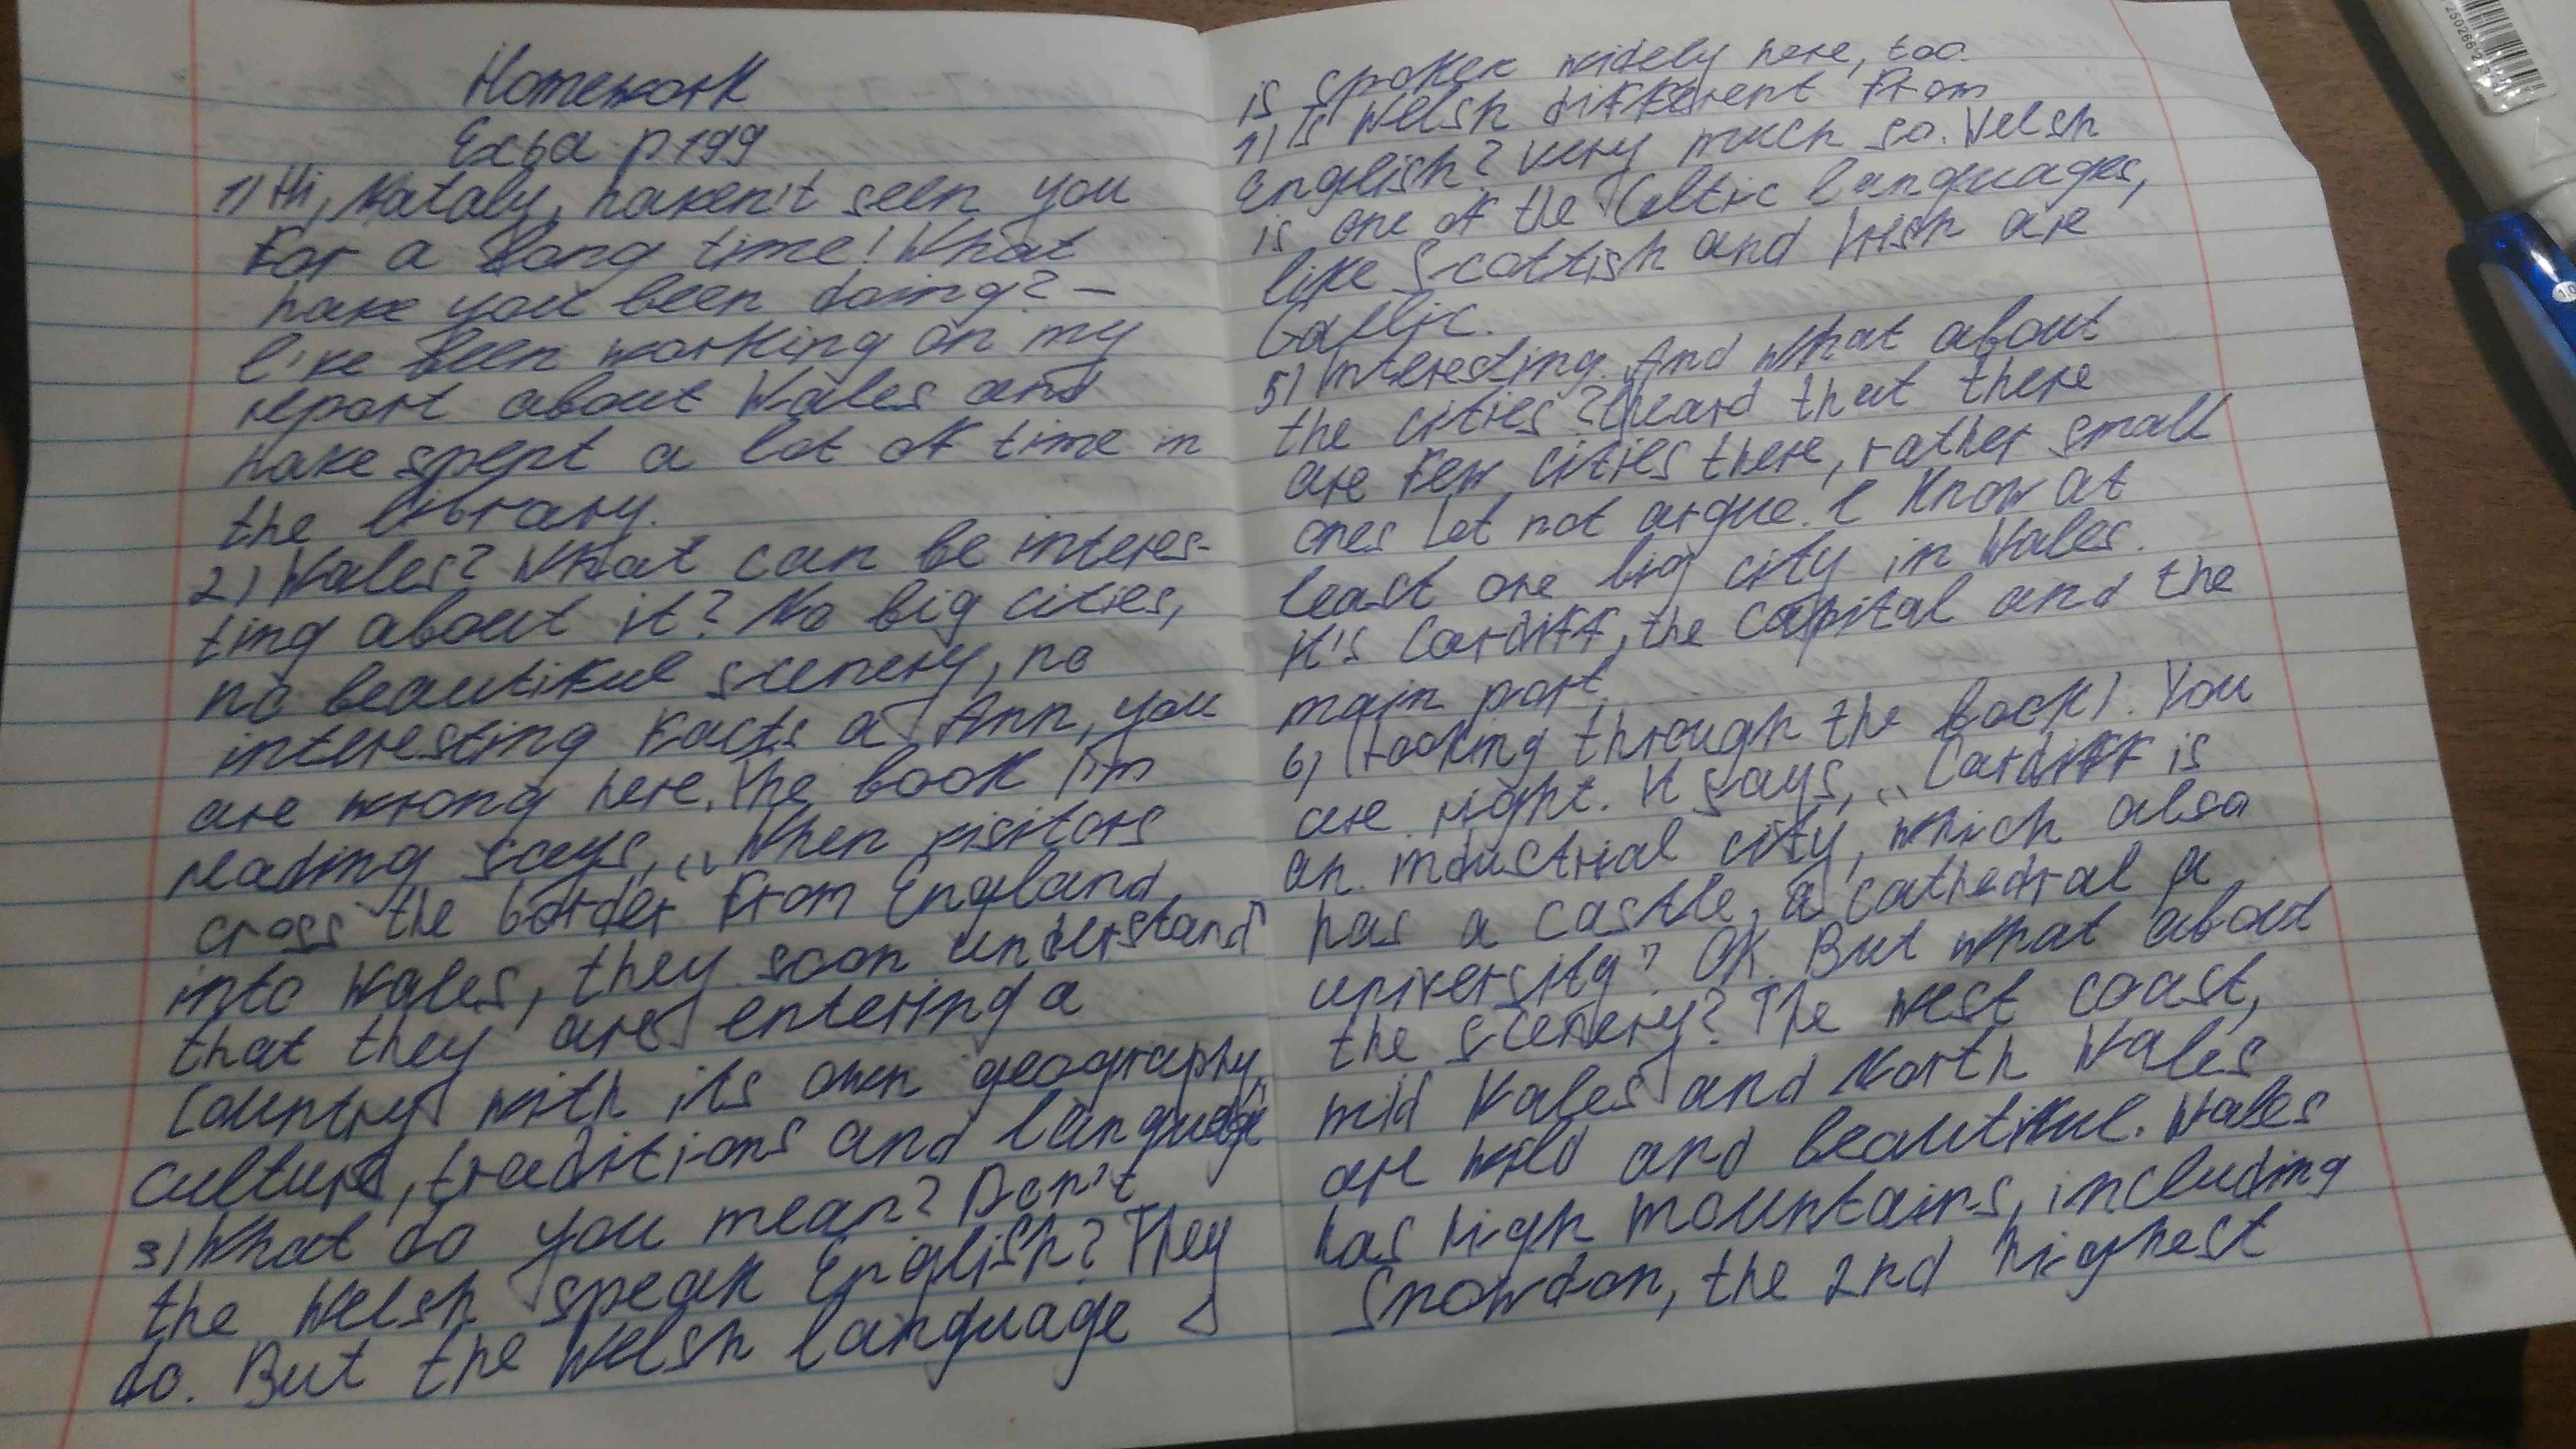 Homework
Ex6a p 199
1) Hi, Nataly, haven't seen you
for a long time! What
have you been doing? -
I've been working on my
report about Wales and
have spent a lot of time in
the library.
2) Wales? What can be interes-
ting about it? No big cities,
no beautiful scenery, no
interesting facts a Ann, you
are wrong here. The book I'm
reading says, „When visitors
cross the border from England
into Wales, they soon understand
that they are entering a
country with its own geography,
culture, traditions and language
3) What do you mean? Don't
the Welsh speak English? They
do. But the Welsh language
is spoken widely here, too.
4) Is Welsh different from
English? Very much so. Welsh
is one of the Celtic languages,
like Scottish and Irish are
Gaelic.
5) Interesting. And what about
the cities? I heard that there
are few cities there, rather small
ones Let not argue. I know at
least one big city in Wales.
it's Cardiff, the capital and the
main port.
6) (Looking through the book). You
are right. It says, „Cardiff is
an industrial city, which also
has a castle, a cathedral a
university? OK. But what about
the scenery? The west coast,
mid Wales and North Wales
are wild and beautiful. Wales
has high mountains, including
Snowdon, the 2nd highest